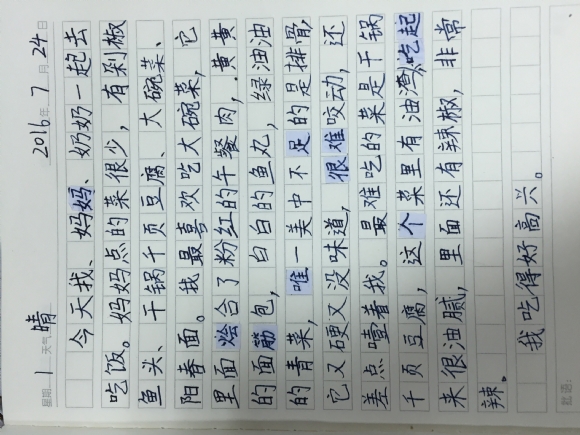 2016年7月24日
星期1 天气晴
今天我、妈妈、奶奶一起去
吃饭。妈妈点的菜很少，有剁椒
鱼头、干锅千页豆腐、大碗菜、
阳春面。我最喜欢吃大碗菜，它
里面烩合了粉红的午餐肉，黄黄
的面筋包，白白的鱼丸，绿油油
的青菜，唯一美中不足的是排骨，
它又硬又没味道，很难咬动，还
差点噎着我。最难吃的菜是干锅
千页豆腐，这个菜里有油渍，吃起
来很油腻，里面还有辣椒，非常
辣。
我吃得好高兴。
批语：